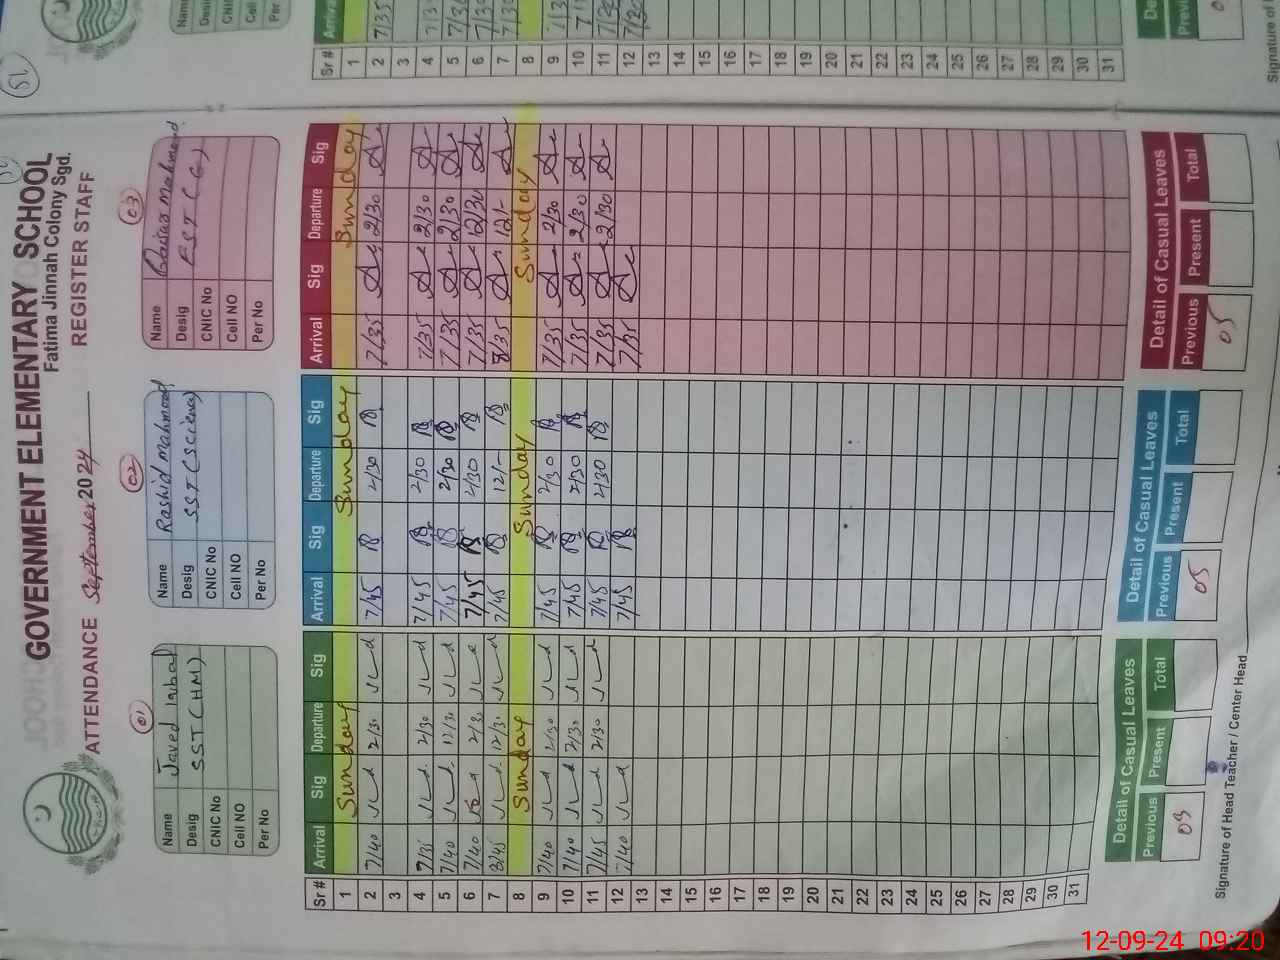 GOVERNMENT ELEMENTARY SCHOOL
Fatima Jinnah Colony Sgd.
ATTENDANCE September 2024 REGISTER STAFF
01 02 03
Name Javed Iqbal Name Rashid Mahmood Name Mahmood
Desig SST (HM) Desig SST (Science) Desig EST (G)
CNIC No CNIC No CNIC No
Cell NO Cell NO Cell NO
Per No Per No Per No
Sr # Arrival Sig Departure Sig Arrival Sig Departure Sig Arrival Sig Departure Sig
1 Sunday Sunday Sunday
2 7/40 2/30 7/45 2/30 7/35 2/30
3
4 7/35 2/30 7/45 2/30 7/35 2/30
5 7/40 12/30 7/45 2/30 7/35 2/30
6 7/40 2/30 7/45 2/30 7/35 12/30
7 12/30 7/45 12/- 12/-
8 Sunday Sunday Sunday
9 7/40 2/30 7/45 2/30 7/35 2/30
10 7/40 2/30 7/45 2/30 7/35 2/30
11 7/45 2/30 7/45 2/30 7/35 2/30
12 7/40 7/45 7/35
13
14
15
16
17
18
19
20
21
22
23
24
25
26
27
28
29
30
31
Detail of Casual Leaves Detail of Casual Leaves Detail of Casual Leaves
Previous Present Total Previous Present Total Previous Present Total
03 05 05
Signature of Head Teacher / Center Head
Name
Desig
CNIC
Cell
Per
Sr # Arrival
1
2 7/35
3
4
5
6
7
8
9
10
11
12
13
14
15
16
17
18
19
20
21
22
23
24
25
26
27
28
29
30
31
De
Previ
Signature of
12-09-24 09:20